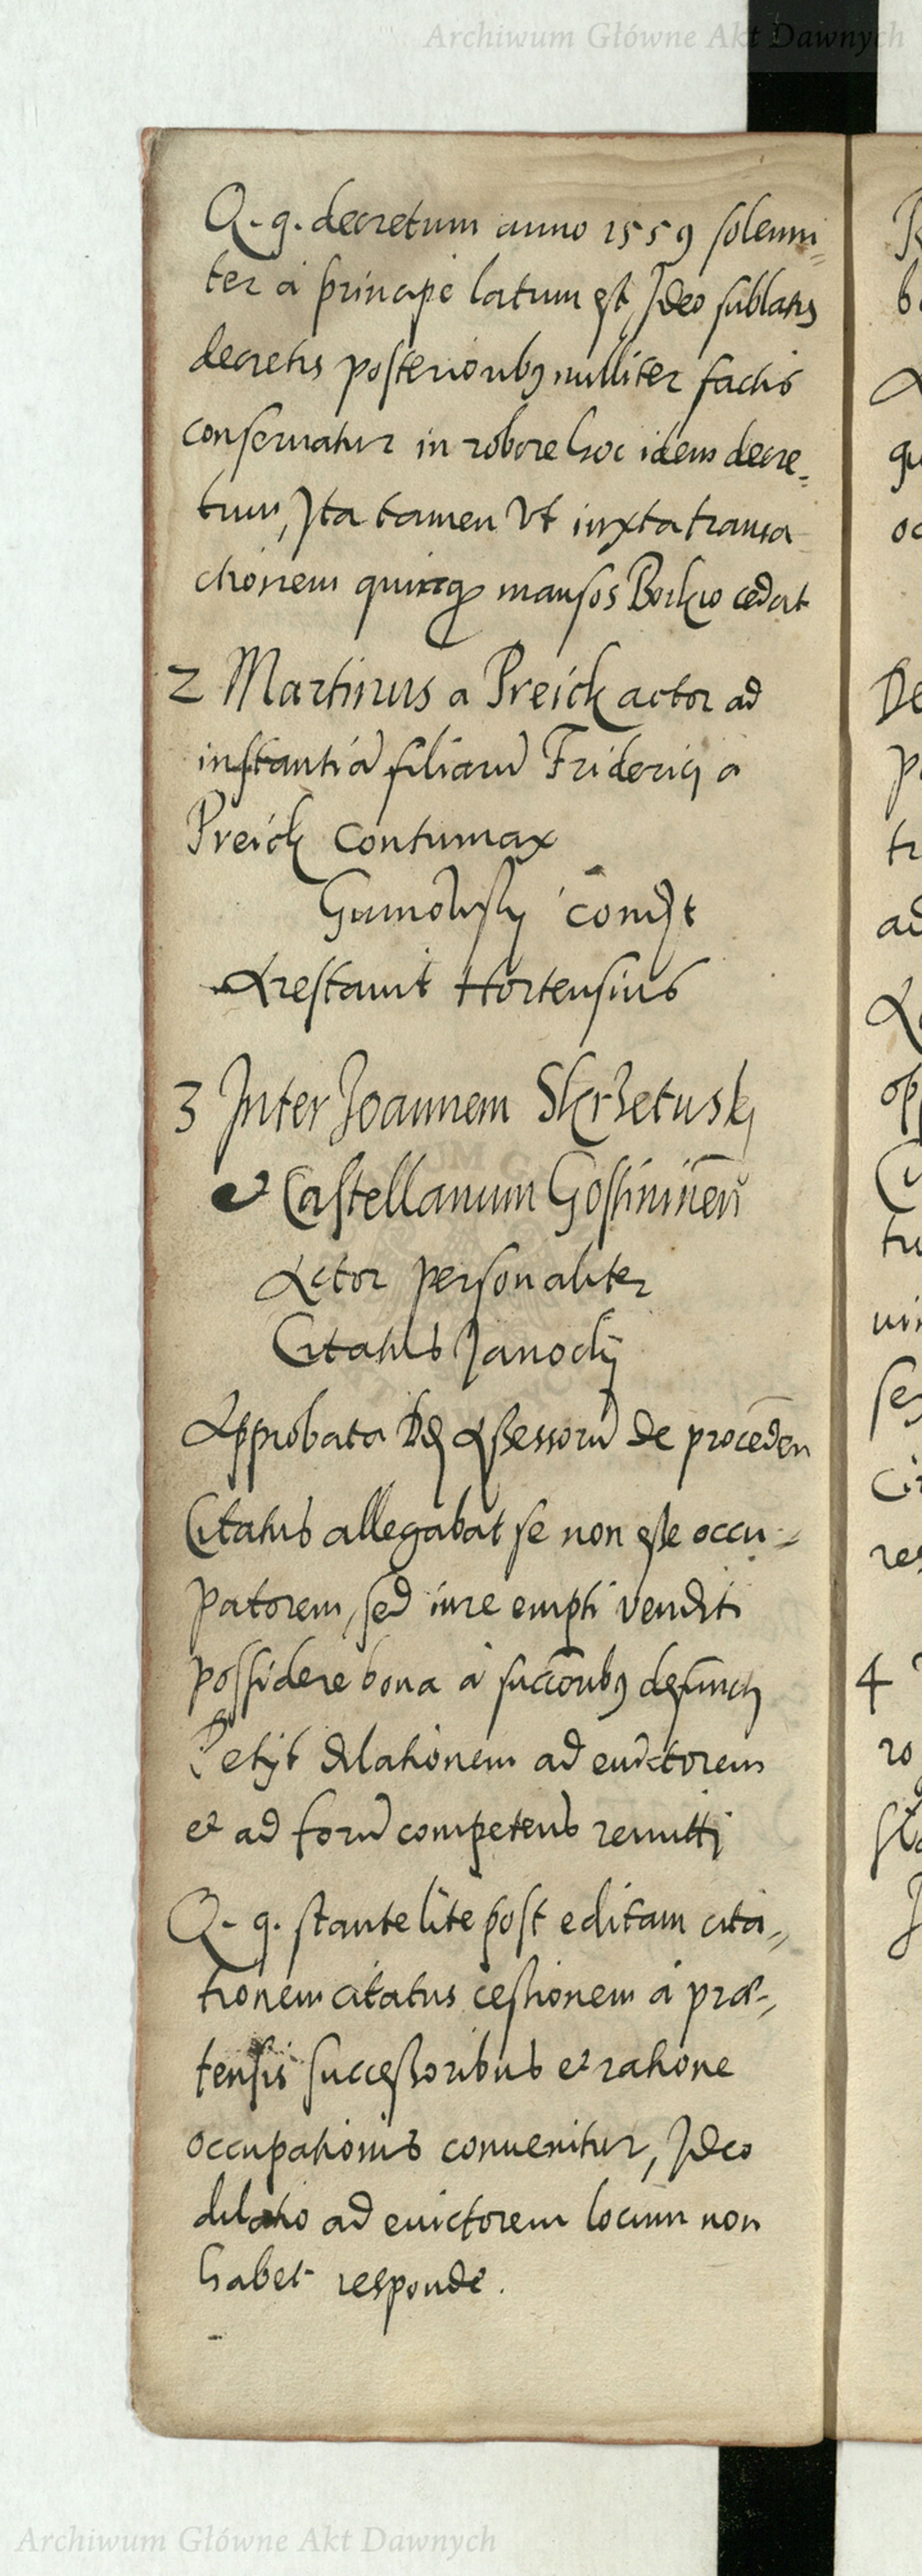 Archiwum Główne Akt Dawnych
Q. q. decretum anno 1559 solenni=
ter à principe latum est, Ideo sublatis
decretis posterioribus nulliter factis
conseruatur in robore hoc idem decre=
tum, Ita tamen Vt iuxta transa
ctionem quinque mansos Borkio cedat
2 Martinus a Preick actor ad
instantiā filiarū Friderici a
Preick Contumax
comꝑt
Arestauit Hortensius
3 Inter Joannem Skrzetuski
et Castellanum Gostininēn
Actor personaliter
Citatus Janocki
Approbata DD Assessorū de procedēn
Citatus allegabat se non esse occu=
patorem, sed iure empti venditi
possidere bona à succōribus defuncti
Petijt dilationem ad euictorem
et ad forū competens remitti
Q. q. stante lite post editam cita=
tionem citatus cessionem à præ=
tensis successoribus et ratione
occupationis conuenitur, Ideo
dilatio ad euictorem locum non
habet responde.
4
Archiwum Główne Akt Dawnych